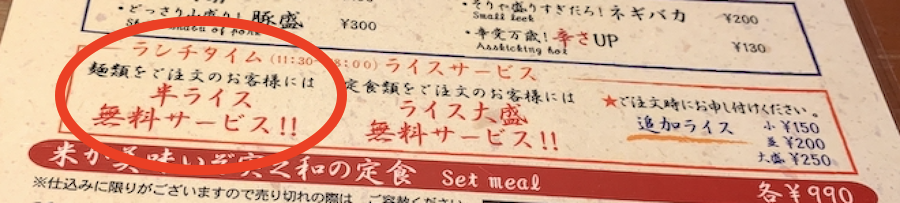 ・どっさり山盛り! 豚盛 ¥300
・そりゃ盛りすぎだろ! ネギバカ ¥200
Small leek
・辛党万歳! 辛さUP ¥130
Asskicking hot
ランチタイム (11:30~18:00) ライスサービス
麺類をご注文のお客様には
半ライス
無料サービス!!
定食類をご注文のお客様には
ライス大盛
無料サービス!!
★ご注文時にお申し付けください。
追加ライス 小 ¥150
並 ¥200
大盛 ¥250
米が美味いぞ実之和の定食 Set meal 各¥990
※仕込みに限りがございますので売り切れの際は ご容赦ください